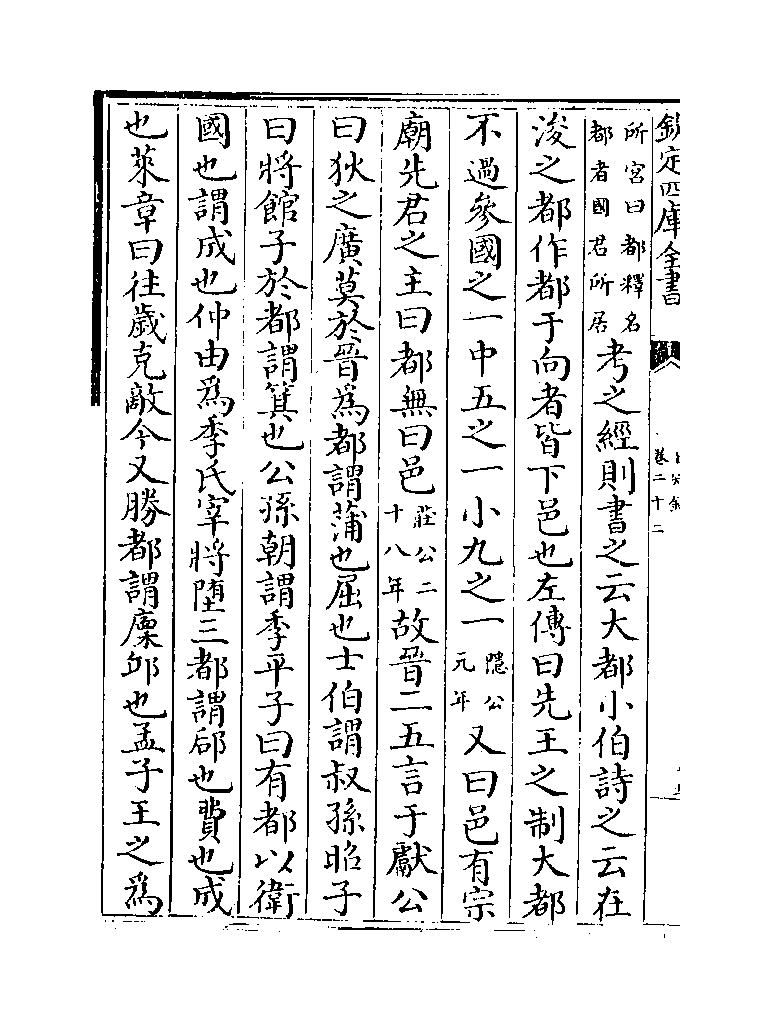 欽定四庫全書
卷二十二
所宫曰都釋名
都者國君所居
考之經則書之云大都小伯詩之云在
浚之都作都于向者皆下邑也左傳曰先王之制大都
不過參國之一中五之一小九之一
隱公
元年
又曰邑有宗
廟先君之主曰都無曰邑
莊公二
十八年
故晉二五言于獻公
曰狄之廣莫於晉為都謂蒲也屈也士伯謂叔孫昭子
曰將館子於都謂箕也公孫朝謂季平子曰有都以衛
國也謂成也仲由為季氏宰將墮三都謂郈也費也成
也萊章曰往歲克敵今又勝都謂廩邱也孟子王之為